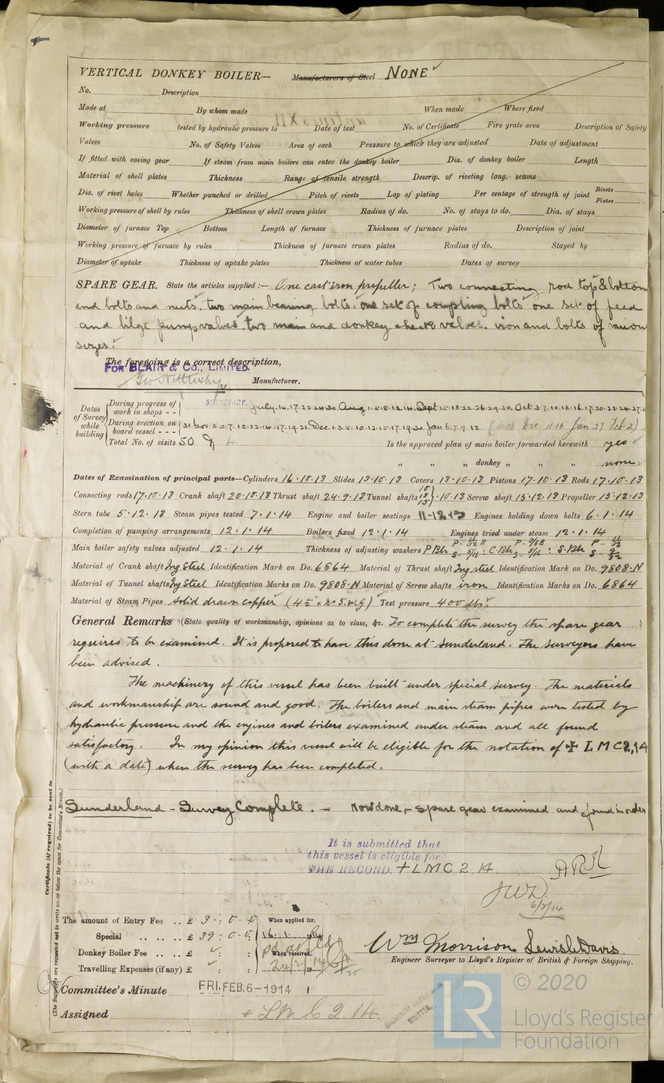 VERTICAL DONKEY BOILER— Manufacturers of Steel NONE
No. Description
Made at By whom made When made Where fixed
Working pressure tested by hydraulic pressure to Date of test No. of Certificate Fire grate area Description of Safety
Valves No. of Safety Valves Area of each Pressure to which they are adjusted Date of adjustment
If fitted with easing gear If steam from main boilers can enter the donkey boiler Dia. of donkey boiler Length
Material of shell plates Thickness Range of tensile strength Descrip. of riveting long. seams
Dia. of rivet holes Whether punched or drilled Pitch of rivets Lap of plating Per centage of strength of joint Rivets Plates
Working pressure of shell by rules Thickness of shell crown plates Radius of do. No. of stays to do. Dia. of stays
Diameter of furnace Top Bottom Length of furnace Thickness of furnace plates Description of joint
Working pressure of furnace by rules Thickness of furnace crown plates Radius of do. Stayed by
Diameter of uptake Thickness of uptake plates Thickness of water tubes Dates of survey
SPARE GEAR. State the articles supplied:— One cast iron propeller; Two connecting rod top & bottom
end bolts and nuts, two main bearing bolts. one set of coupling bolts one set of feed
and bilge pump valves, two main and donkey check valves. iron and bolts of various
sizes.
The foregoing is a correct description,
FOR BLAIR & CO., LIMITED
Manufacturer.
SECRETARY.
Dates of Survey while building
During progress of work in shops - -
During erection on board vessel - - -
Total No. of visits 50
Is the approved plan of main boiler forwarded herewith yes
" " " donkey " " " none
Dates of Examination of principal parts—Cylinders 16.10.13 Slides 13.10.13 Covers 13.10.13 Pistons 17.10.13 Rods 17.10.13
Connecting rods 17.10.13 Crank shaft 20.10.13 Thrust shaft 24.9.13 Tunnel shafts 10.13 Screw shaft 15.12.13 Propeller 15.12.13
Stern tube 5.12.13 Steam pipes tested 7.1.14 Engine and boiler seatings 11-12-13 Engines holding down bolts 6.1.14
Completion of pumping arrangements 12.1.14 Boilers fixed 12.1.14 Engines tried under steam 12.1.14
Main boiler safety valves adjusted 12.1.14 Thickness of adjusting washers
Material of Crank shaft Ing Steel Identification Mark on Do. 6864 Material of Thrust shaft Ing steel Identification Mark on Do. 9808.N
Material of Tunnel shafts Ing Steel Identification Marks on Do. 9808.N Material of Screw shafts iron Identification Marks on Do. 6864
Material of Steam Pipes Solid drawn copper Test pressure 400 lbs.
General Remarks (State quality of workmanship, opinions as to class, &c. To complete the survey the spare gear
requires to be examined. It is proposed to have this done at Sunderland. The surveyors have
been advised.
The machinery of this vessel has been built under special survey. The materials
and workmanship are sound and good. The boilers and main steam pipes were tested by
hydraulic pressure and the engines and boilers examined under steam and all found
satisfactory. In my opinion this vessel will be eligible for the notation of ✠ LMC 2,14
(with a date) when the survey has been completed.
Sunderland - Survey Complete. - now done, - spare gear examined and found in order
It is submitted that
this vessel is eligible for
THE RECORD + LMC 2.14
6/2/14
The amount of Entry Fee .. £ 3 : 0 : 0 When applied for,
Special .. .. £ 39 : 0 : 0 16.1.
Donkey Boiler Fee .. .. £ When received,
Travelling Expenses (if any) £
Wm Morrison Lewis L Davis.
Engineer Surveyor to Lloyd's Register of British & Foreign Shipping.
Committee's Minute FRI. FEB. 6-1914
Assigned + LMC 2 14
Certificate (if required) to be sent to
(The Surveyors are requested not to write on or below the space for Committee's Minute.)
© 2020
LR
Lloyd's Register
Foundation